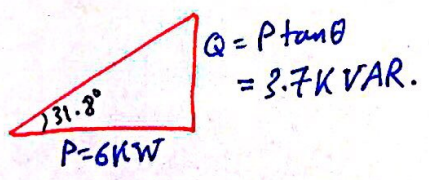 Q = P tanθ
= 3.7K VAR.
31.8°
P=6KW